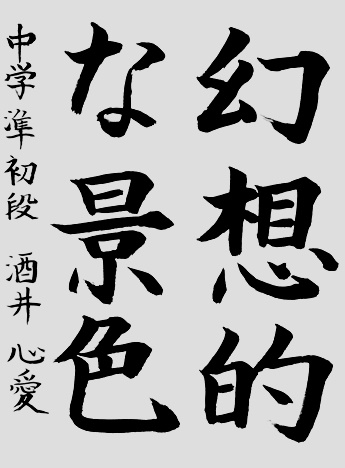 幻想的
な景色
中学準初段 酒井心愛